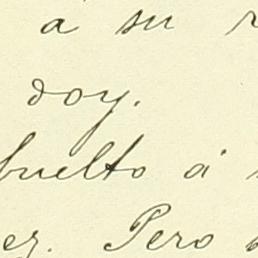 a su
doy.
buelto á
ez. Pero